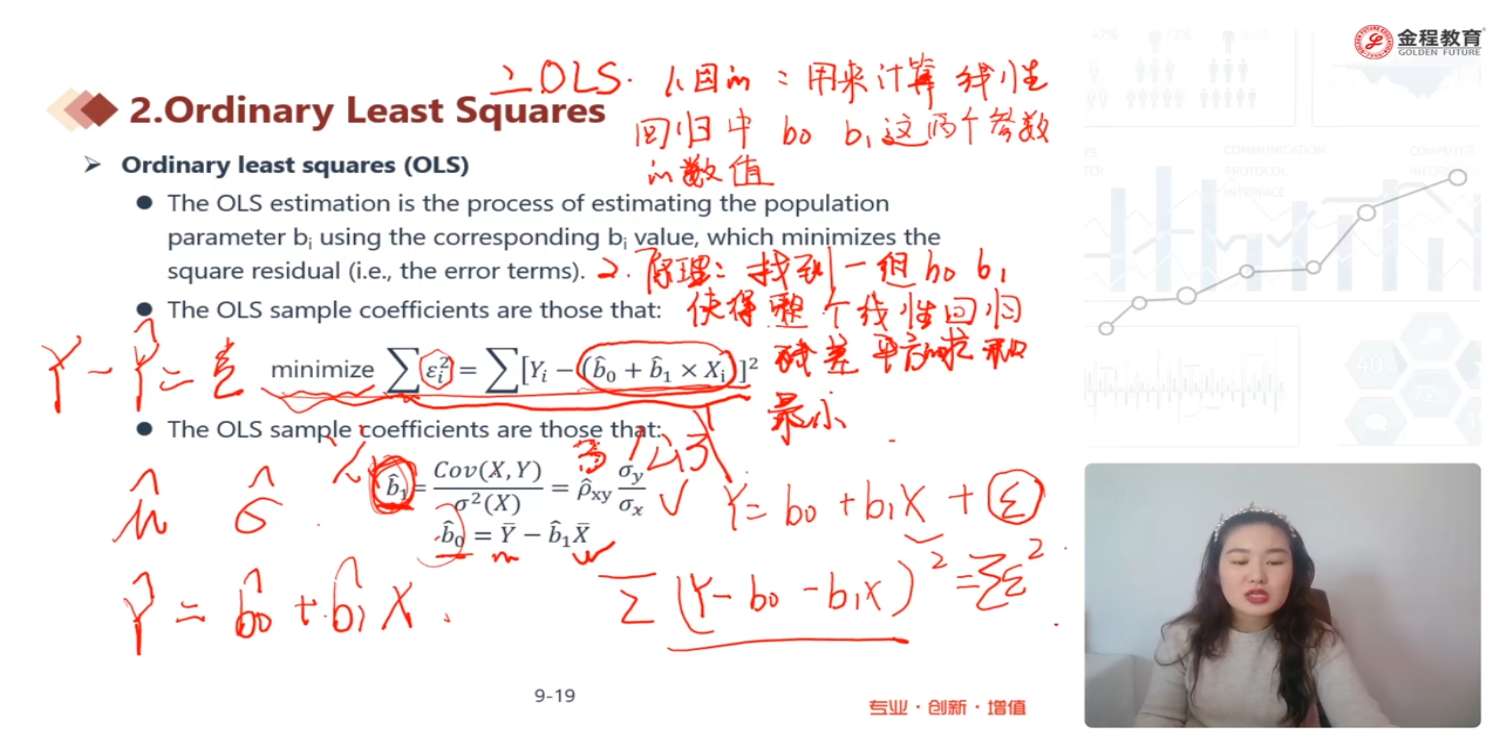 金程教育
GOLDEN FUTURE
2.Ordinary Least Squares
二 OLS. 1.目的：用来计算 线性
回归中 b0 b1 这两个参数
的数值
Ordinary least squares (OLS)
The OLS estimation is the process of estimating the population
parameter bᵢ using the corresponding bᵢ value, which minimizes the
square residual (i.e., the error terms).
2. 原理：找到一组 b0 b1
The OLS sample coefficients are those that:
使得整个线性回归
残差平方的求和
最小
Y - Ŷ = ε
minimize ∑ εᵢ² = ∑[Yᵢ − (b̂₀ + b̂₁ × Xᵢ)]²
The OLS sample coefficients are those that:
公式
b̂₁ = Cov(X,Y) / σ²(X) = ρ̂xy σy / σx
b̂₀ = Ȳ − b̂₁X̄
μ̂ σ̂
Y = b0 + b1X + ε
Ŷ = b̂0 + b̂1 X.
∑ (Y - b0 - b1X)² = ∑ε²
9-19
专业·创新·增值